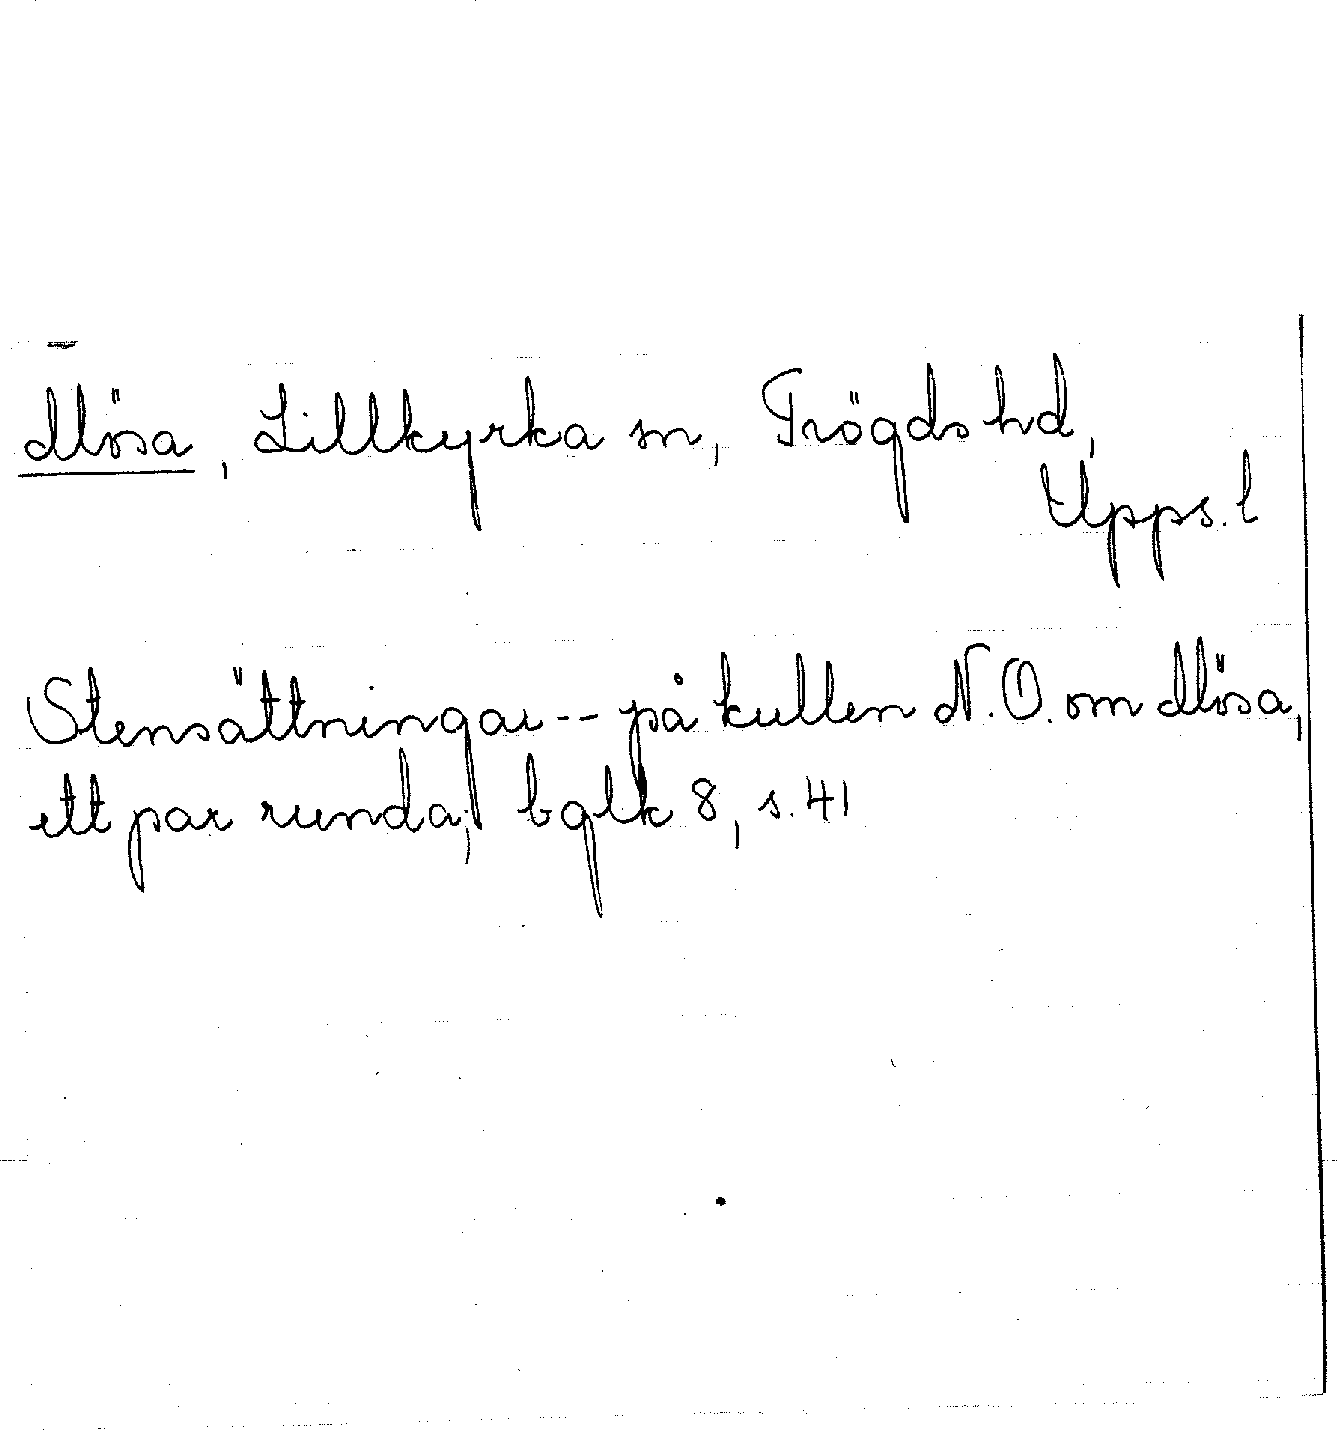 Mösa, Lillkyrka sn, Trögds hd,
Upps. l
Stensättningar -- på kullen N.O. om Mösa,
ett par runda; bglk 8, s. 41